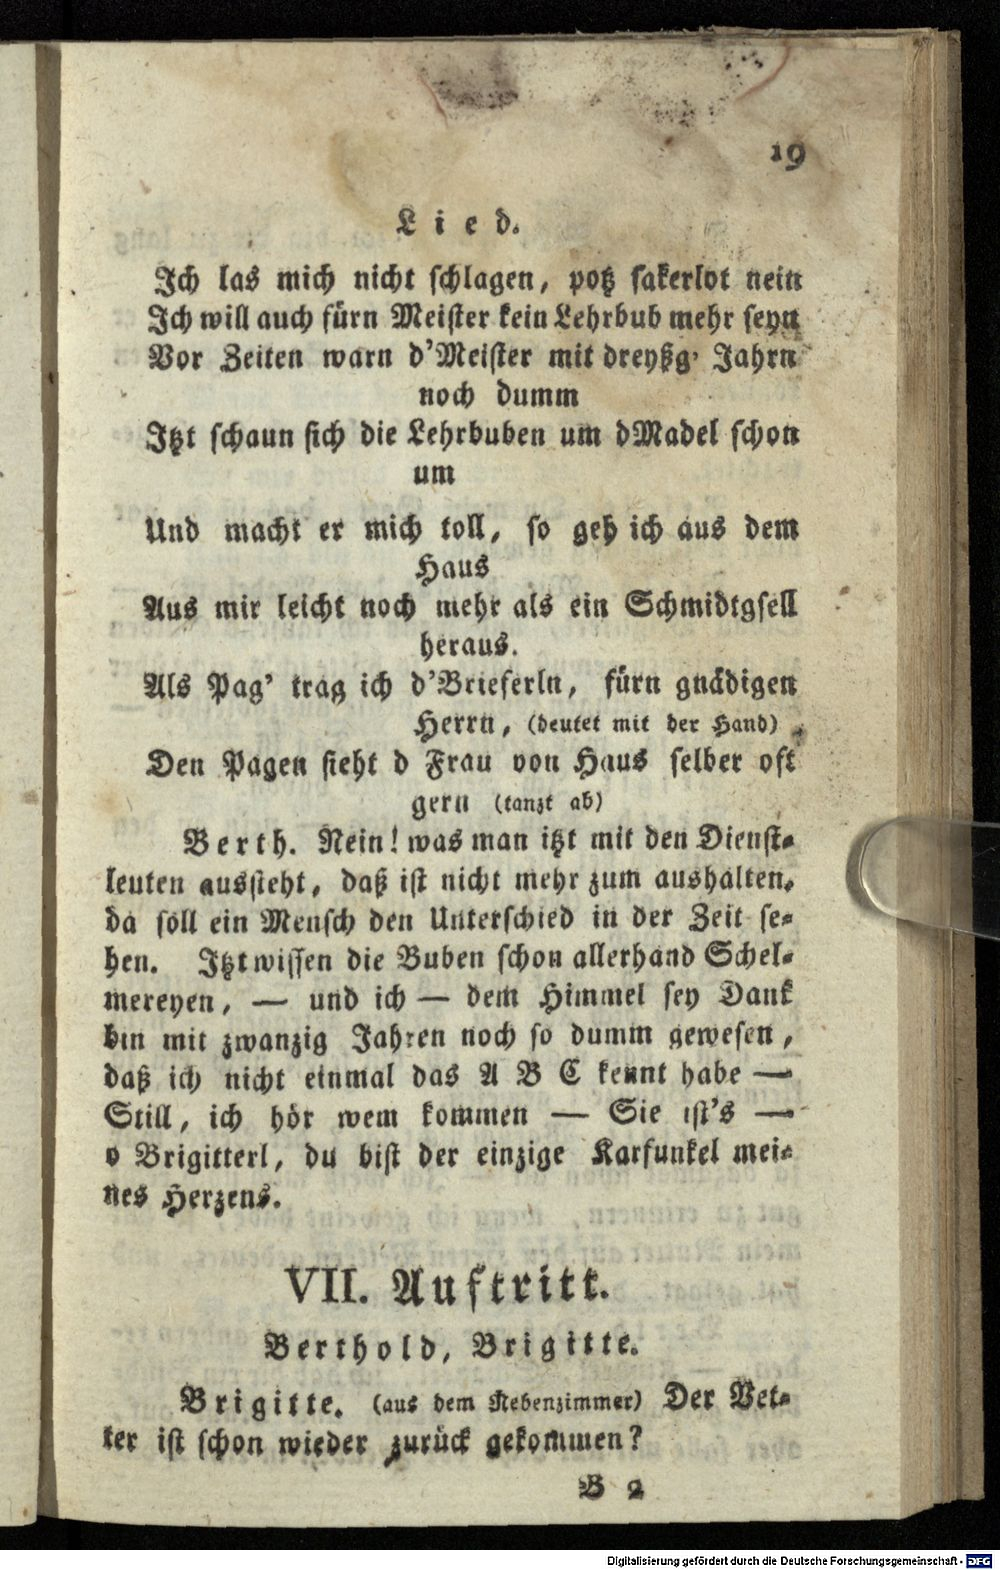 19
Lied.
Ich las mich nicht schlagen, potz sakerlot nein
Ich will auch fürn Meister kein Lehrbub mehr seyn
Vor Zeiten warn d'Meister mit dreyßg' Jahrn
noch dumm
Itzt schaun sich die Lehrbuben um dMadel schon
um
Und macht er mich toll, so geh ich aus dem
Haus
Aus mir leicht noch mehr als ein Schmidtgsell
heraus.
Als Pag' trag ich d'Brieferln, fürn gnädigen
Herrn, (deutet mit der Hand)
Den Pagen sieht d Frau von Haus selber oft
gern (tanzt ab)
Berth. Nein! was man itzt mit den Dienst-
leuten aussteht, daß ist nicht mehr zum aushalten.
da soll ein Mensch den Unterschied in der Zeit se-
hen. Itzt wissen die Buben schon allerhand Schel-
mereyen, — und ich — dem Himmel sey Dank
bin mit zwanzig Jahren noch so dumm gewesen,
daß ich nicht einmal das A B C kennt habe —
Still, ich hör wem kommen — Sie ist's —
o Brigitterl, du bist der einzige Karfunkel mei-
nes Herzens.
VII. Auftritt.
Berthold, Brigitte.
Brigitte. (aus dem Nebenzimmer) Der Vet-
ter ist schon wieder zurück gekommen?
B 2
Digitalisierung gefördert durch die Deutsche Forschungsgemeinschaft - DFG